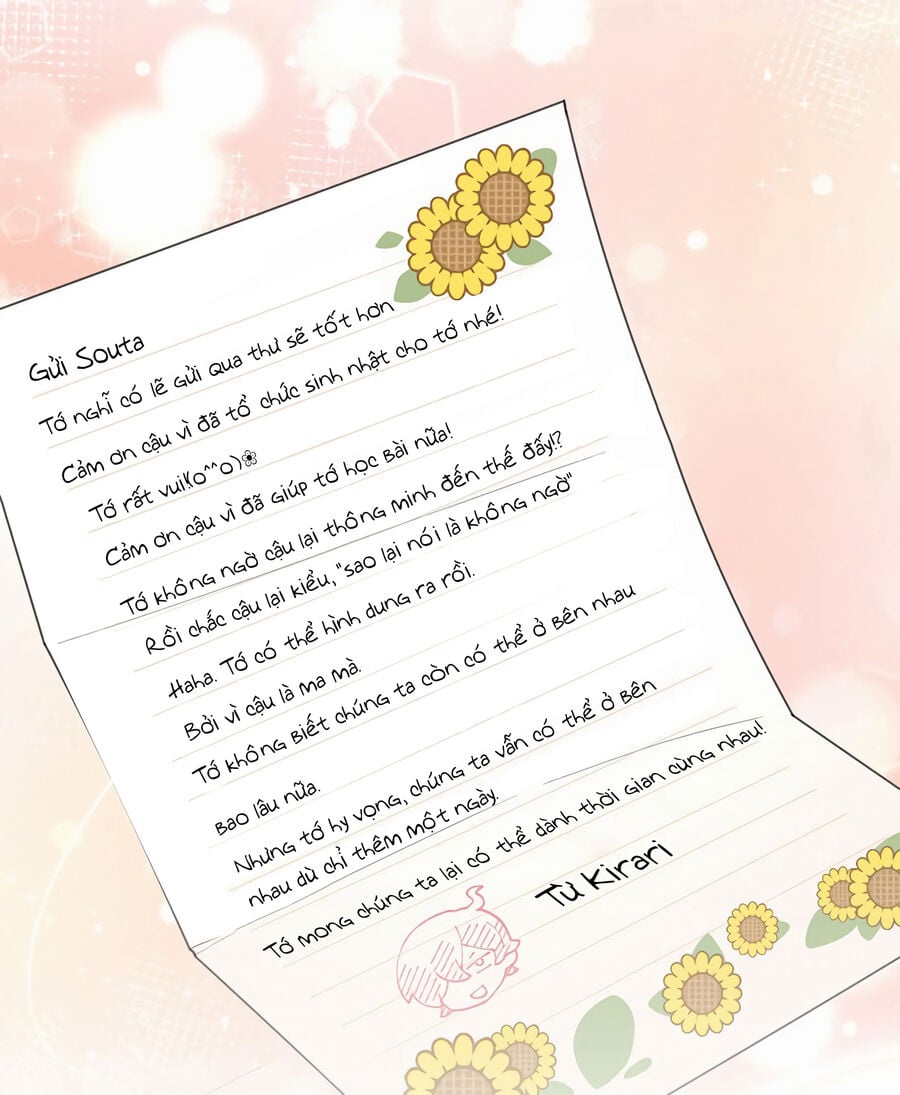 Gửi Souta
Tớ nghĩ có lẽ gửi qua thư sẽ tốt hơn
Cảm ơn cậu vì đã tổ chức sinh nhật cho tớ nhé!
Tớ rất vui!(o^^o)❀
Cảm ơn cậu vì đã giúp tớ học bài nữa!
Tớ không ngờ cậu lại thông minh đến thế đấy!?
Rồi chắc cậu lại kiểu, "sao lại nói là không ngờ"
Haha. Tớ có thể hình dung ra rồi.
Bởi vì cậu là ma mà.
Tớ không biết chúng ta còn có thể ở bên nhau
bao lâu nữa.
Nhưng tớ hy vọng, chúng ta vẫn có thể ở bên
nhau dù chỉ thêm một ngày.
Tớ mong chúng ta lại có thể dành thời gian cùng nhau!
Từ Kirari